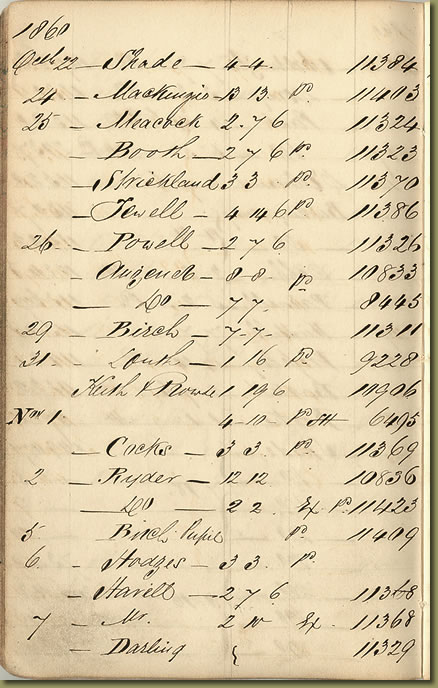 1860
Octb 22 — Shade — 4 4 11384
24 — Mackenzie — 13 13 pd. 11403
25 — Meacock 2 7 6 11324
— Booth — 2 7 6 pd. 11323
— Strickland 3 3 pd. 11370
— Jewell — 4 14 6 pd. 11386
26 — Powell — 2 7 6 11326
— — 8 8 pd. 10833
— Do — 7 7 8445
29 — Birch — 7 7 11311
31 — South — 1 16 pd. 9228
Keith & Rowse 1 19 6
Nov 1. 4 10 pd. 6495
— Cocks — 3 3 pd. 11369
2 — Ryder — 12 12 10836
— Do — 2 2 Ex pd. 11423
5 Birch Pupil pd. 11409
6 — Hodges — 3 3 pd.
— Harell — 2 7 6
7 — Mr. 2 10 Ex. 11368
— Darling 11329